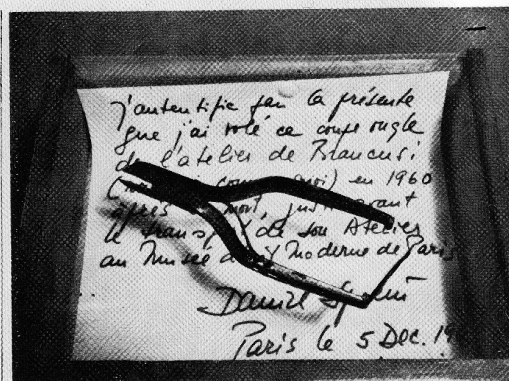 j'autentifie par la présente
que j'ai volé ce coupe ongle
de l'atelier de Brancusi
en 1960
après mort, juste avant
le de son Atelier
au Musée Moderne de Paris
Daniel
Paris le 5 DEC. 19